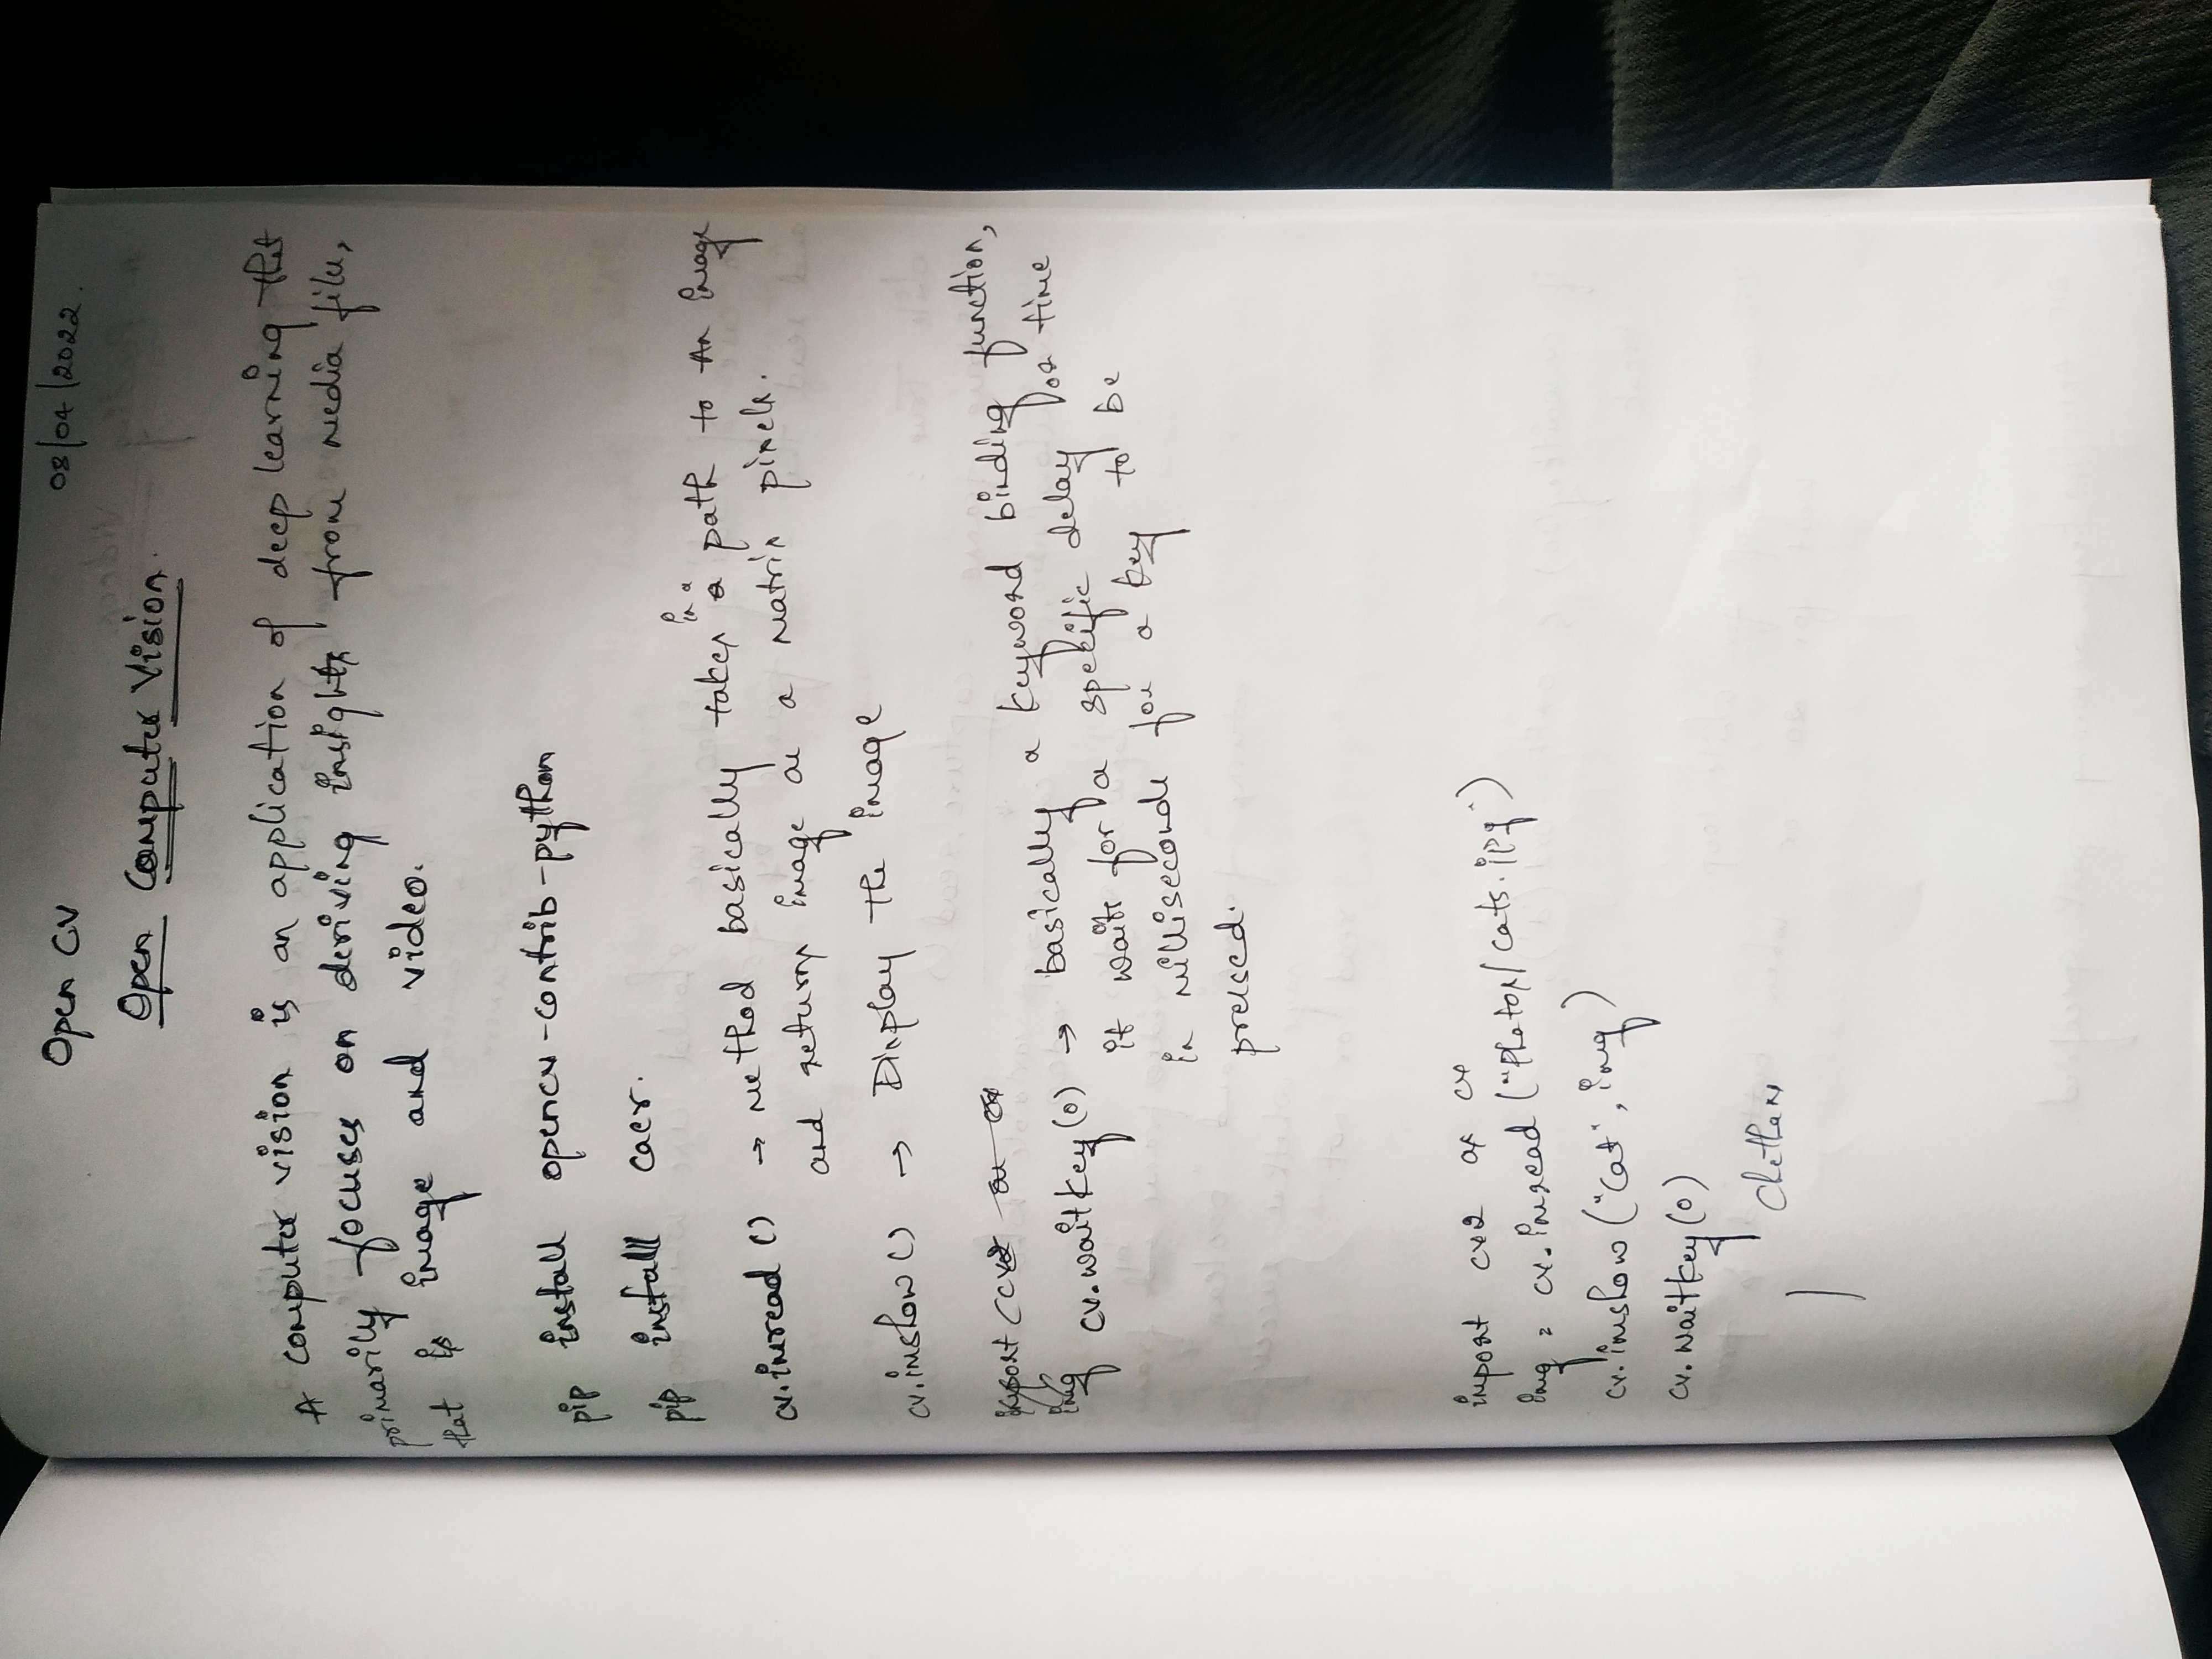 Open CV
08/04/2022.
Open Computer Vision.
A computer vision is an application of deep learning that
primarily focuses on deriving insights from media files,
that is image and video.
pip install opencv-contrib-python
pip install caer.
cv.imread() → method basically takes in a path to an image
and returns image as a matrix pixels.
cv.imshow() → Display the image
import cv2 as cv
img
cv.waitkey(0) → basically a keyword binding function,
it waits for a specific delay or time
in milliseconds for a key to be
pressed.
import cv2 as cv
img = cv.imread("Photos/cats.jpg")
cv.imshow("Cat", img)
cv.waitkey(0)
Chethan